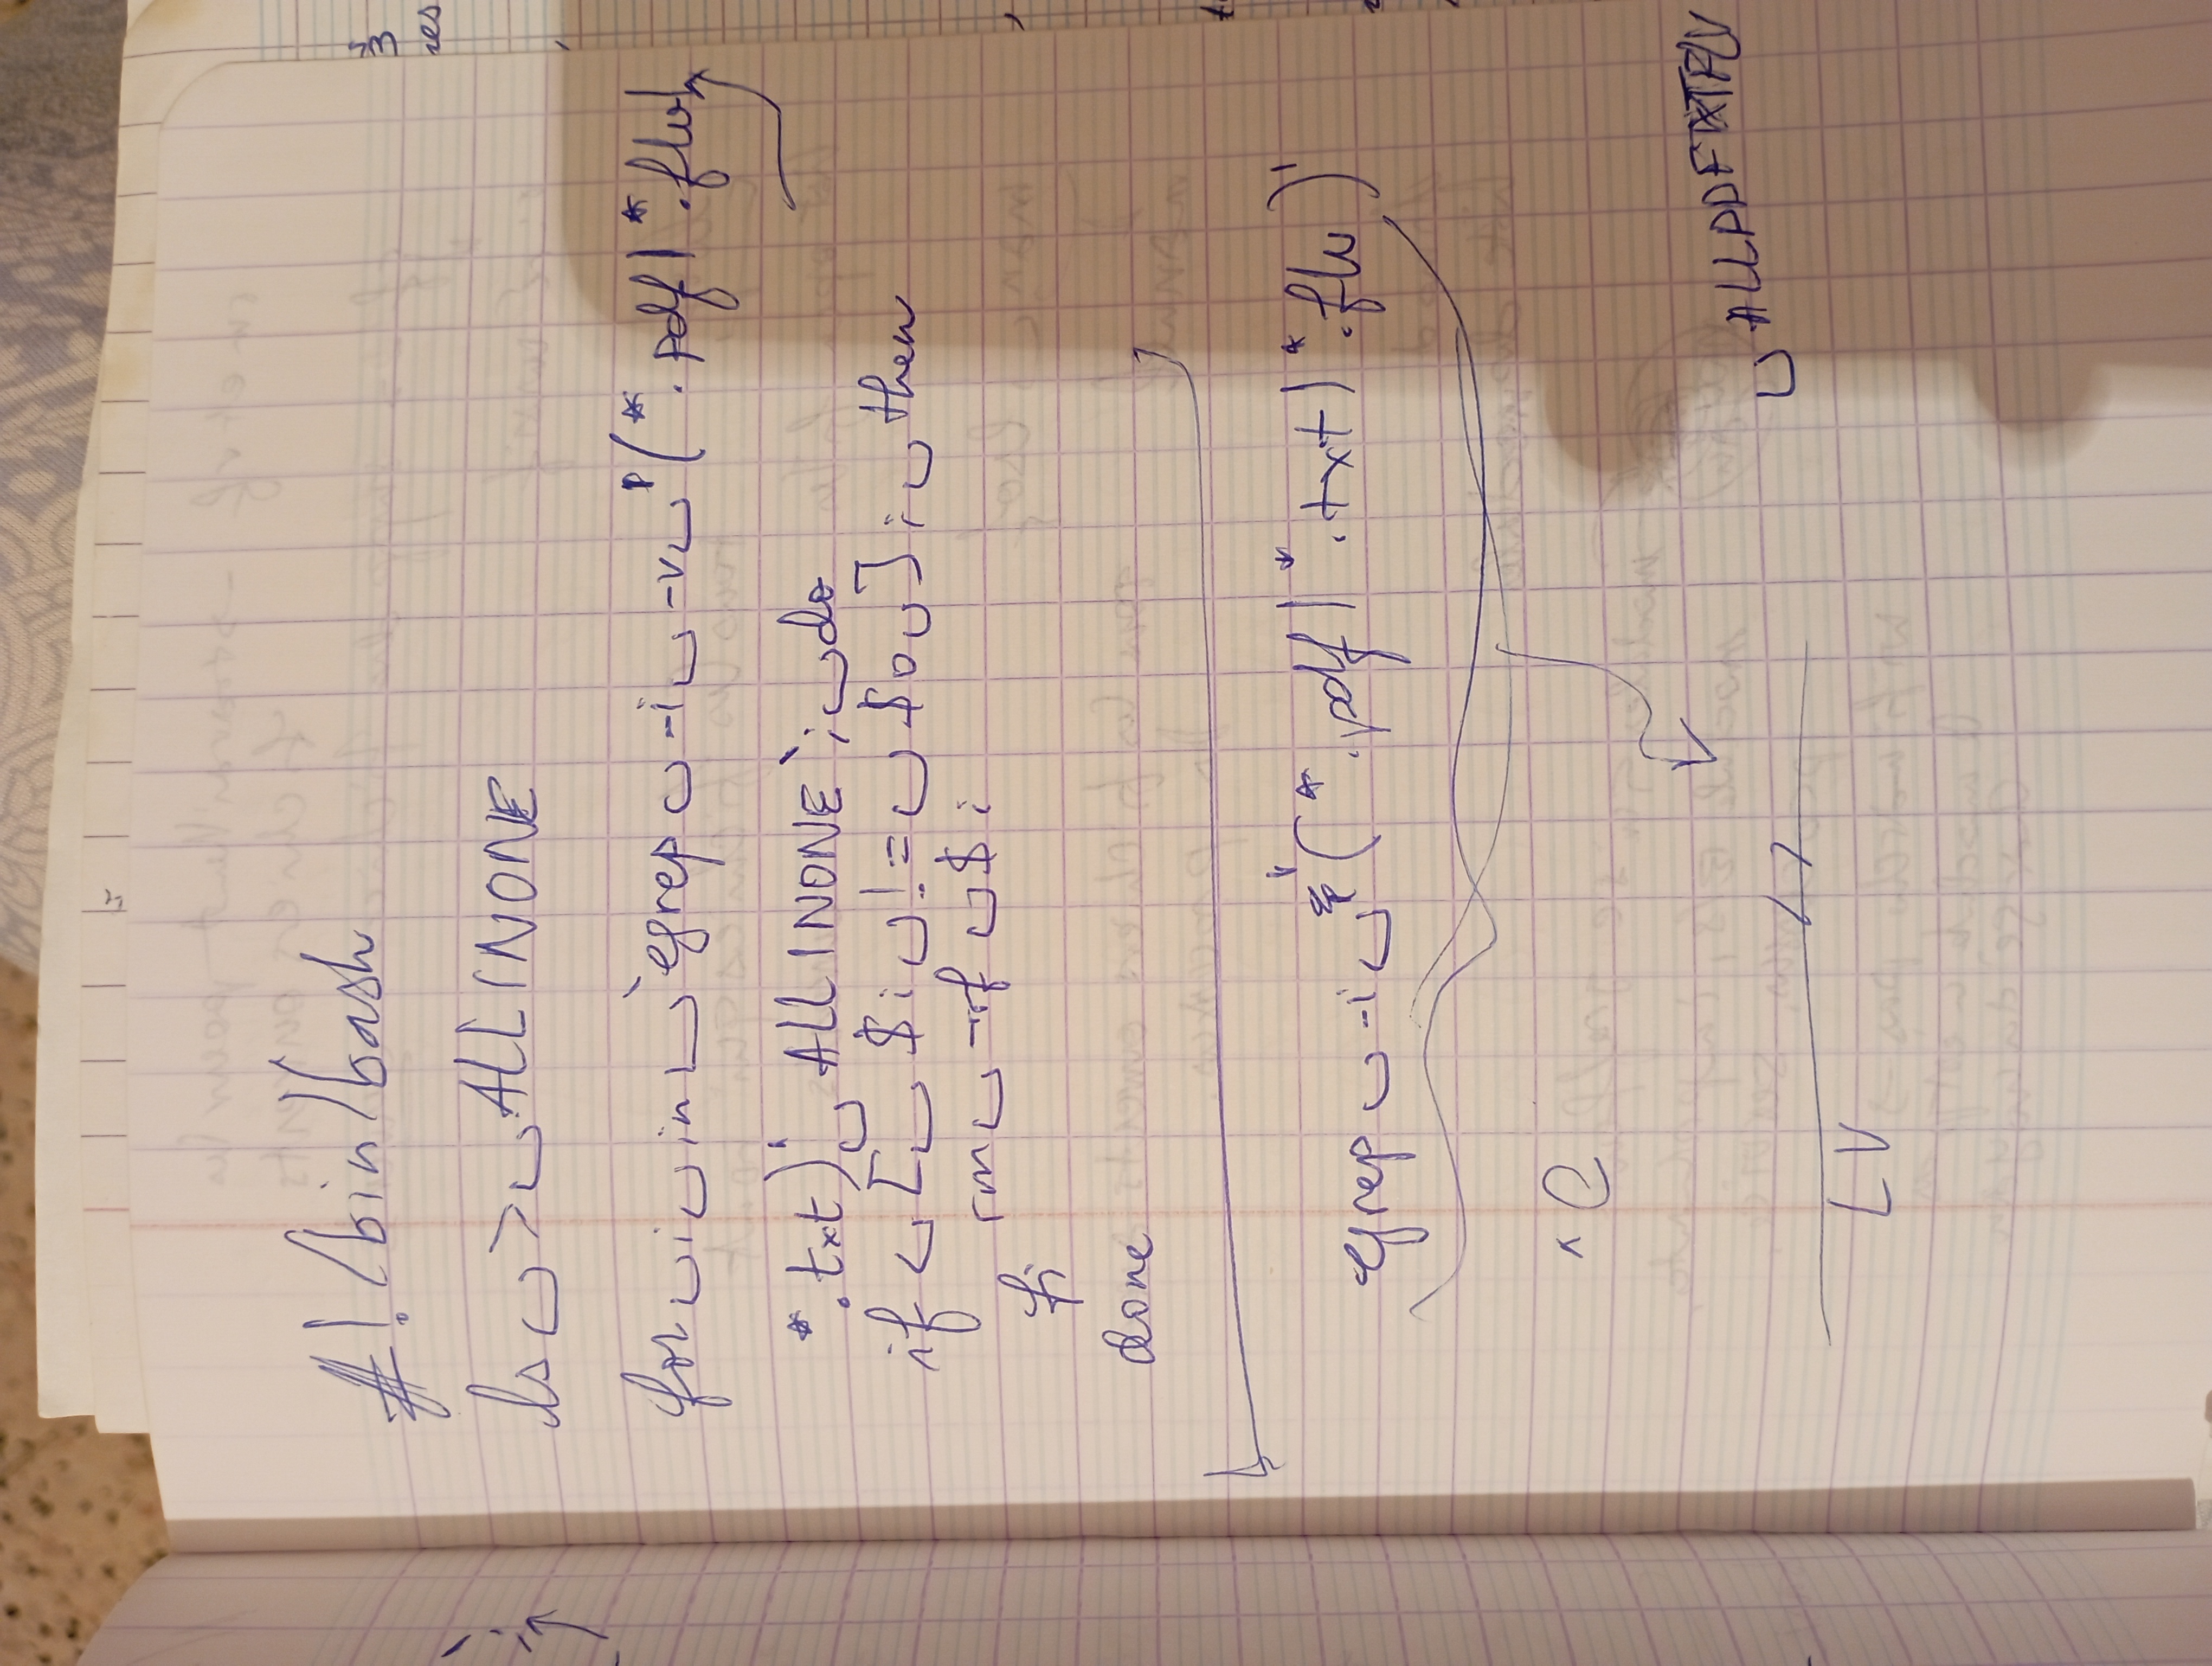 #!/bin/bash
ls␣>␣ALLINONE
for␣i␣in␣`egrep␣-i␣-v␣'(*.pdf|*.flv|
*.txt)'␣ALLINONE`;␣do
if␣[␣$i␣!=␣$0␣];␣then
rm␣-rf␣$i
fi
done
egrep␣-i␣'(*.pdf|*.txt|*.flv)'
^C
␣ALLPDFTXTFLV
LV